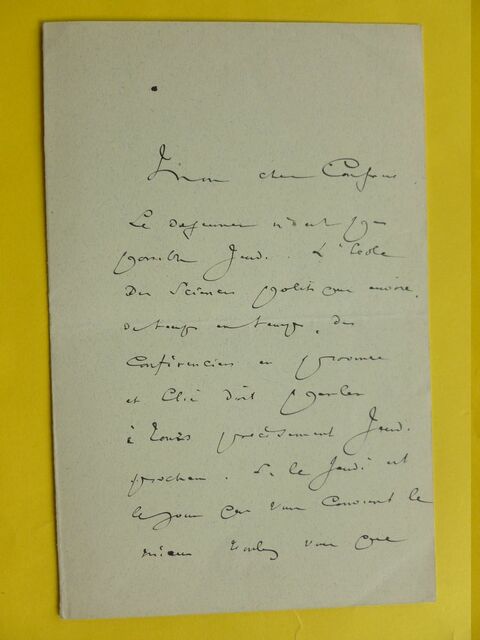 Mon cher Confrère
Le dejeuner n'est pas
possible Jeudi. L'Ecole
Des Sciences politiques envoie,
de temps en temps, des
Conférenciers en province
et doit parler
à Tours précisément Jeudi
prochain. Si le Jeudi est
le jour qui vous convient le
mieux voulez vous que